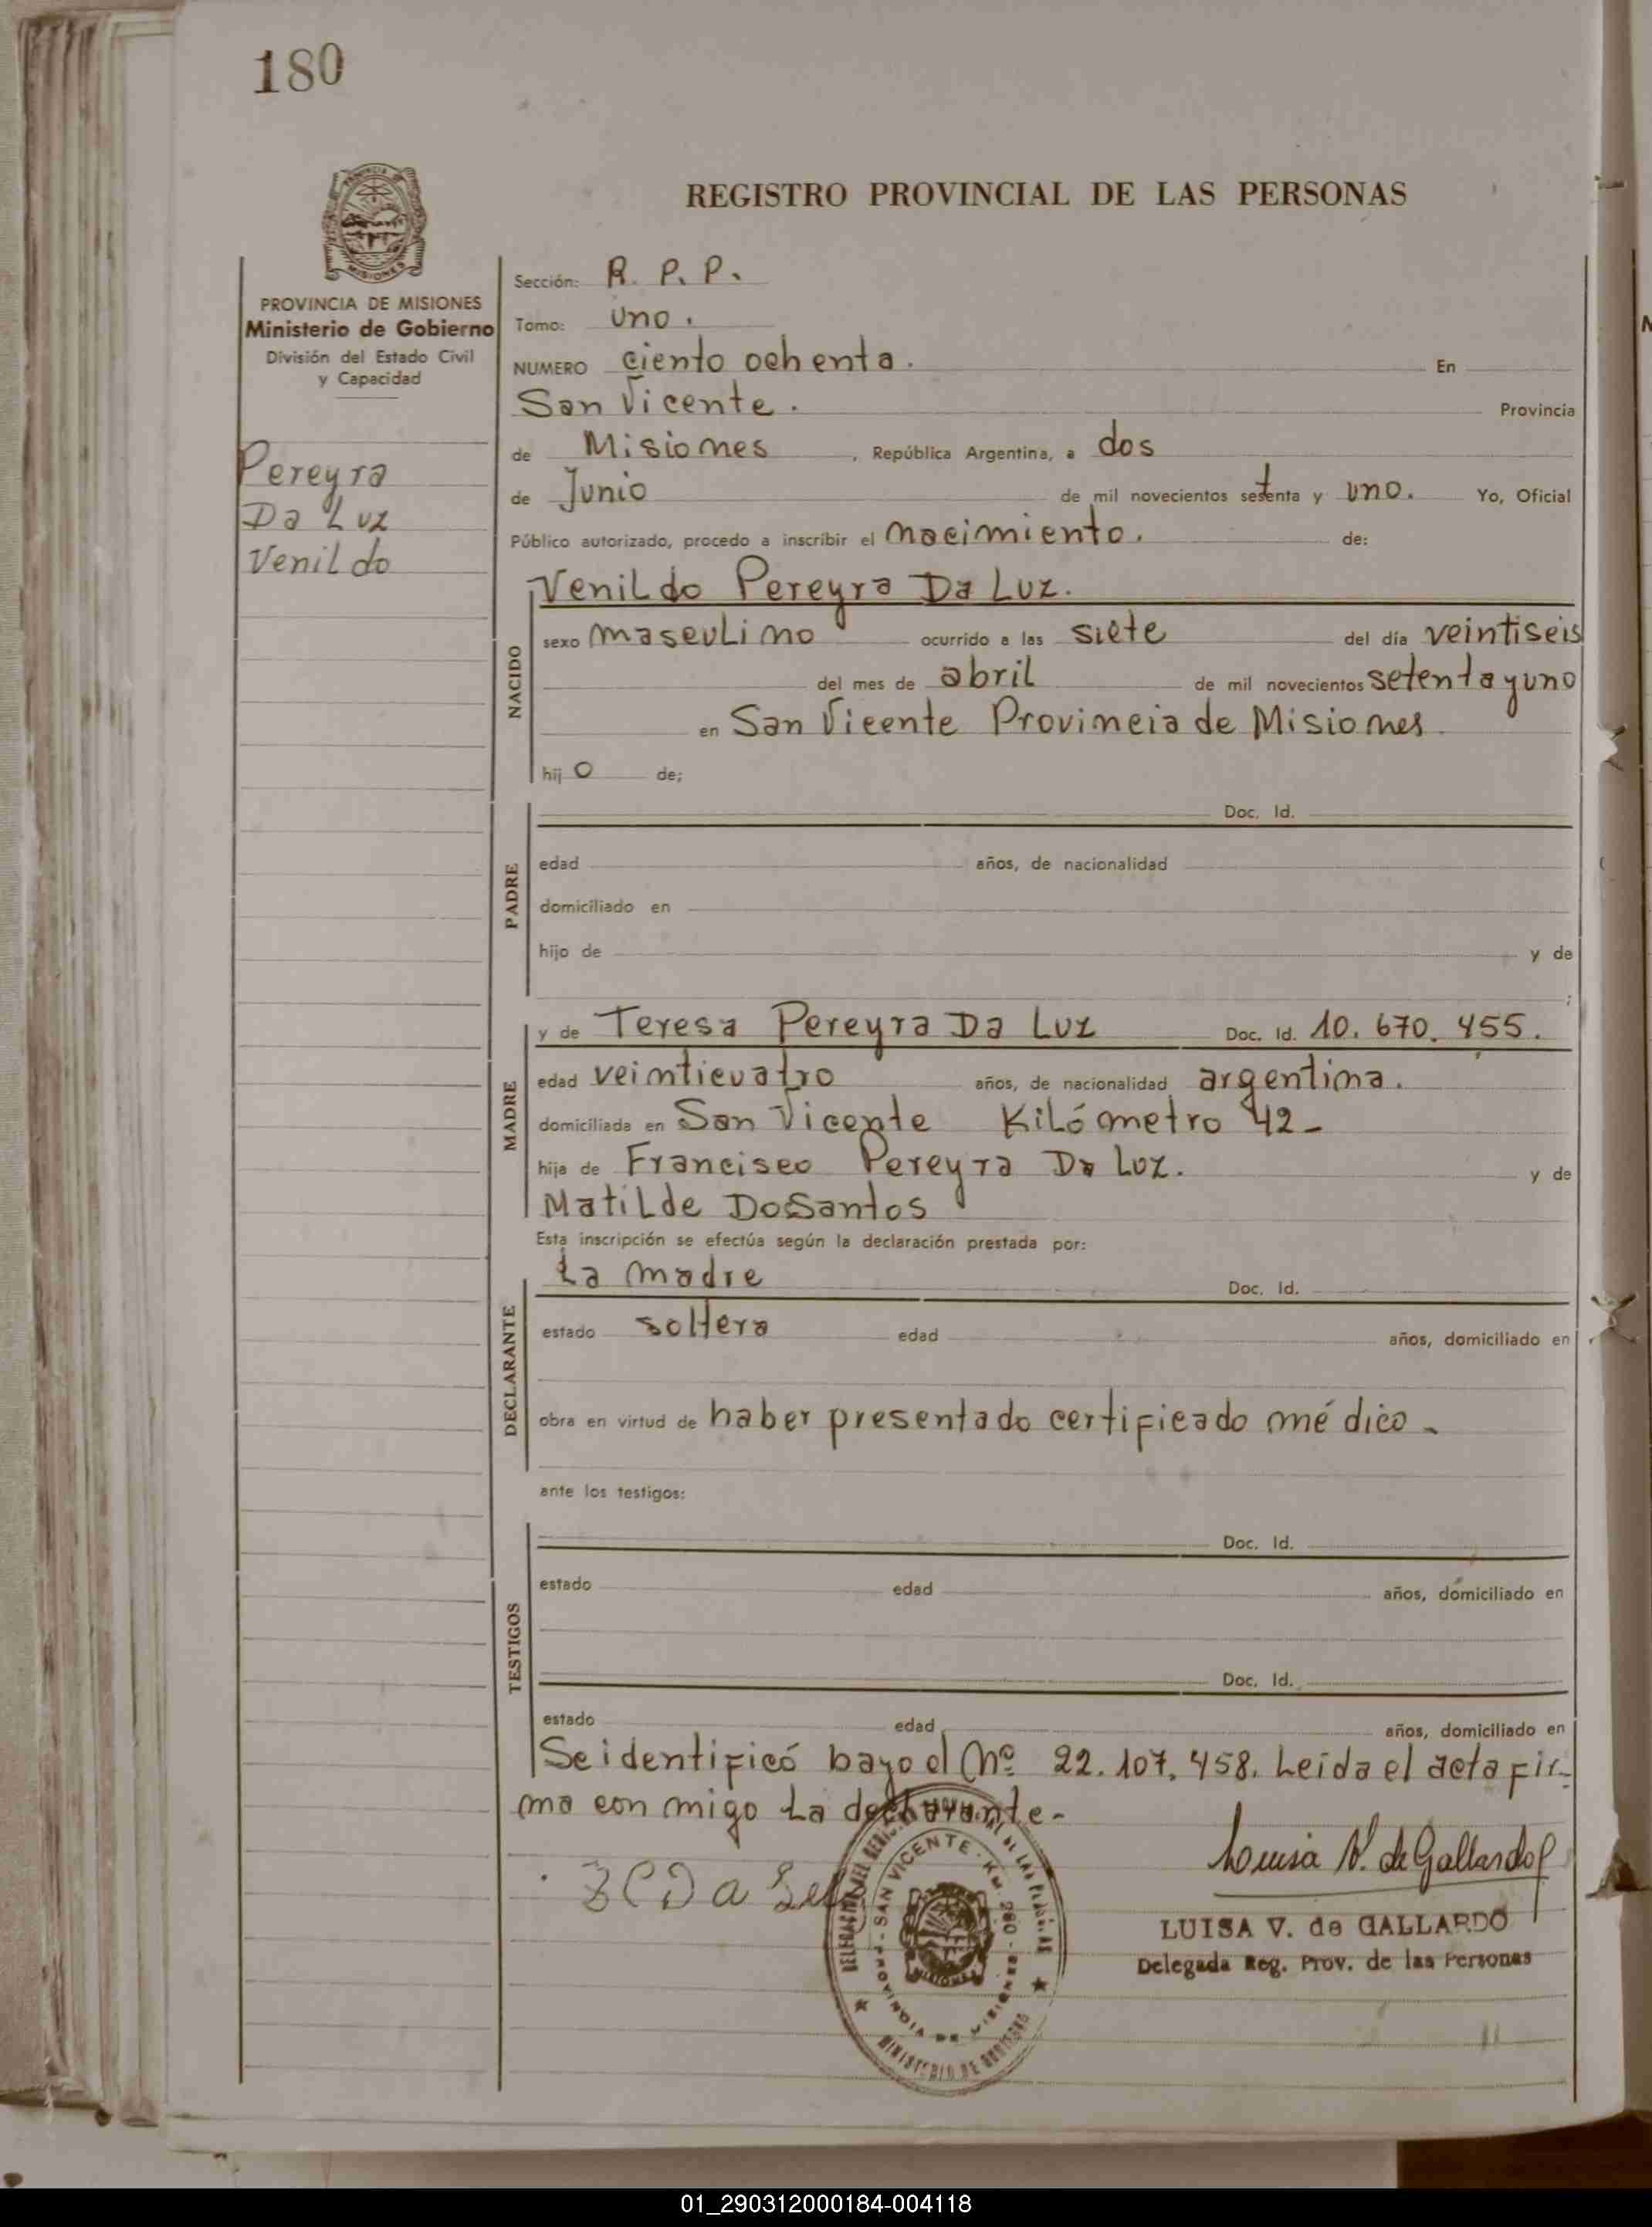 180
REGISTRO PROVINCIAL DE LAS PERSONAS
PROVINCIA DE MISIONES
Ministerio de Gobierno
División del Estado Civil
y Capacidad
Pereyra
Da Luz
Venildo
Sección: R. P. P.
Tomo: uno.
NUMERO ciento ochenta. En
San Vicente. Provincia
de Misiones, República Argentina, a dos
de Junio de mil novecientos setenta y uno. Yo, Oficial
Público autorizado, procedo a inscribir el nacimiento. de:
NACIDO
Venildo Pereyra Da Luz.
sexo masculino ocurrido a las siete del día veintiseis
del mes de abril de mil novecientos setenta y uno
en San Vicente Provincia de Misiones.
hij o de;
PADRE
Doc. Id.
edad años, de nacionalidad
domiciliado en
hijo de y de
;
MADRE
y de Teresa Pereyra Da Luz Doc. Id. 10.670.455.
edad veinticuatro años, de nacionalidad argentina.
domiciliada en San Vicente Kilómetro 42-
hija de Francisco Pereyra Da Luz. y de
Matilde DoSantos
Esta inscripción se efectúa según la declaración prestada por:
DECLARANTE
La madre Doc. Id.
estado soltera edad años, domiciliado en
obra en virtud de haber presentado certificado médico-
ante los testigos:
TESTIGOS
Doc. Id.
estado edad años, domiciliado en
Doc. Id.
estado edad años, domiciliado en
Se identificó bajo el Nº 22.107.458. Leída el acta fir-
ma con migo La declarante-
SAN VICENTE - KM. 260
PROVINCIA DE MISIONES
MINISTERIO DE GOBIERNO
Luisa V. de Gallardo
LUISA V. de GALLARDO
Delegada Reg. Prov. de las Personas
01_290312000184-004118